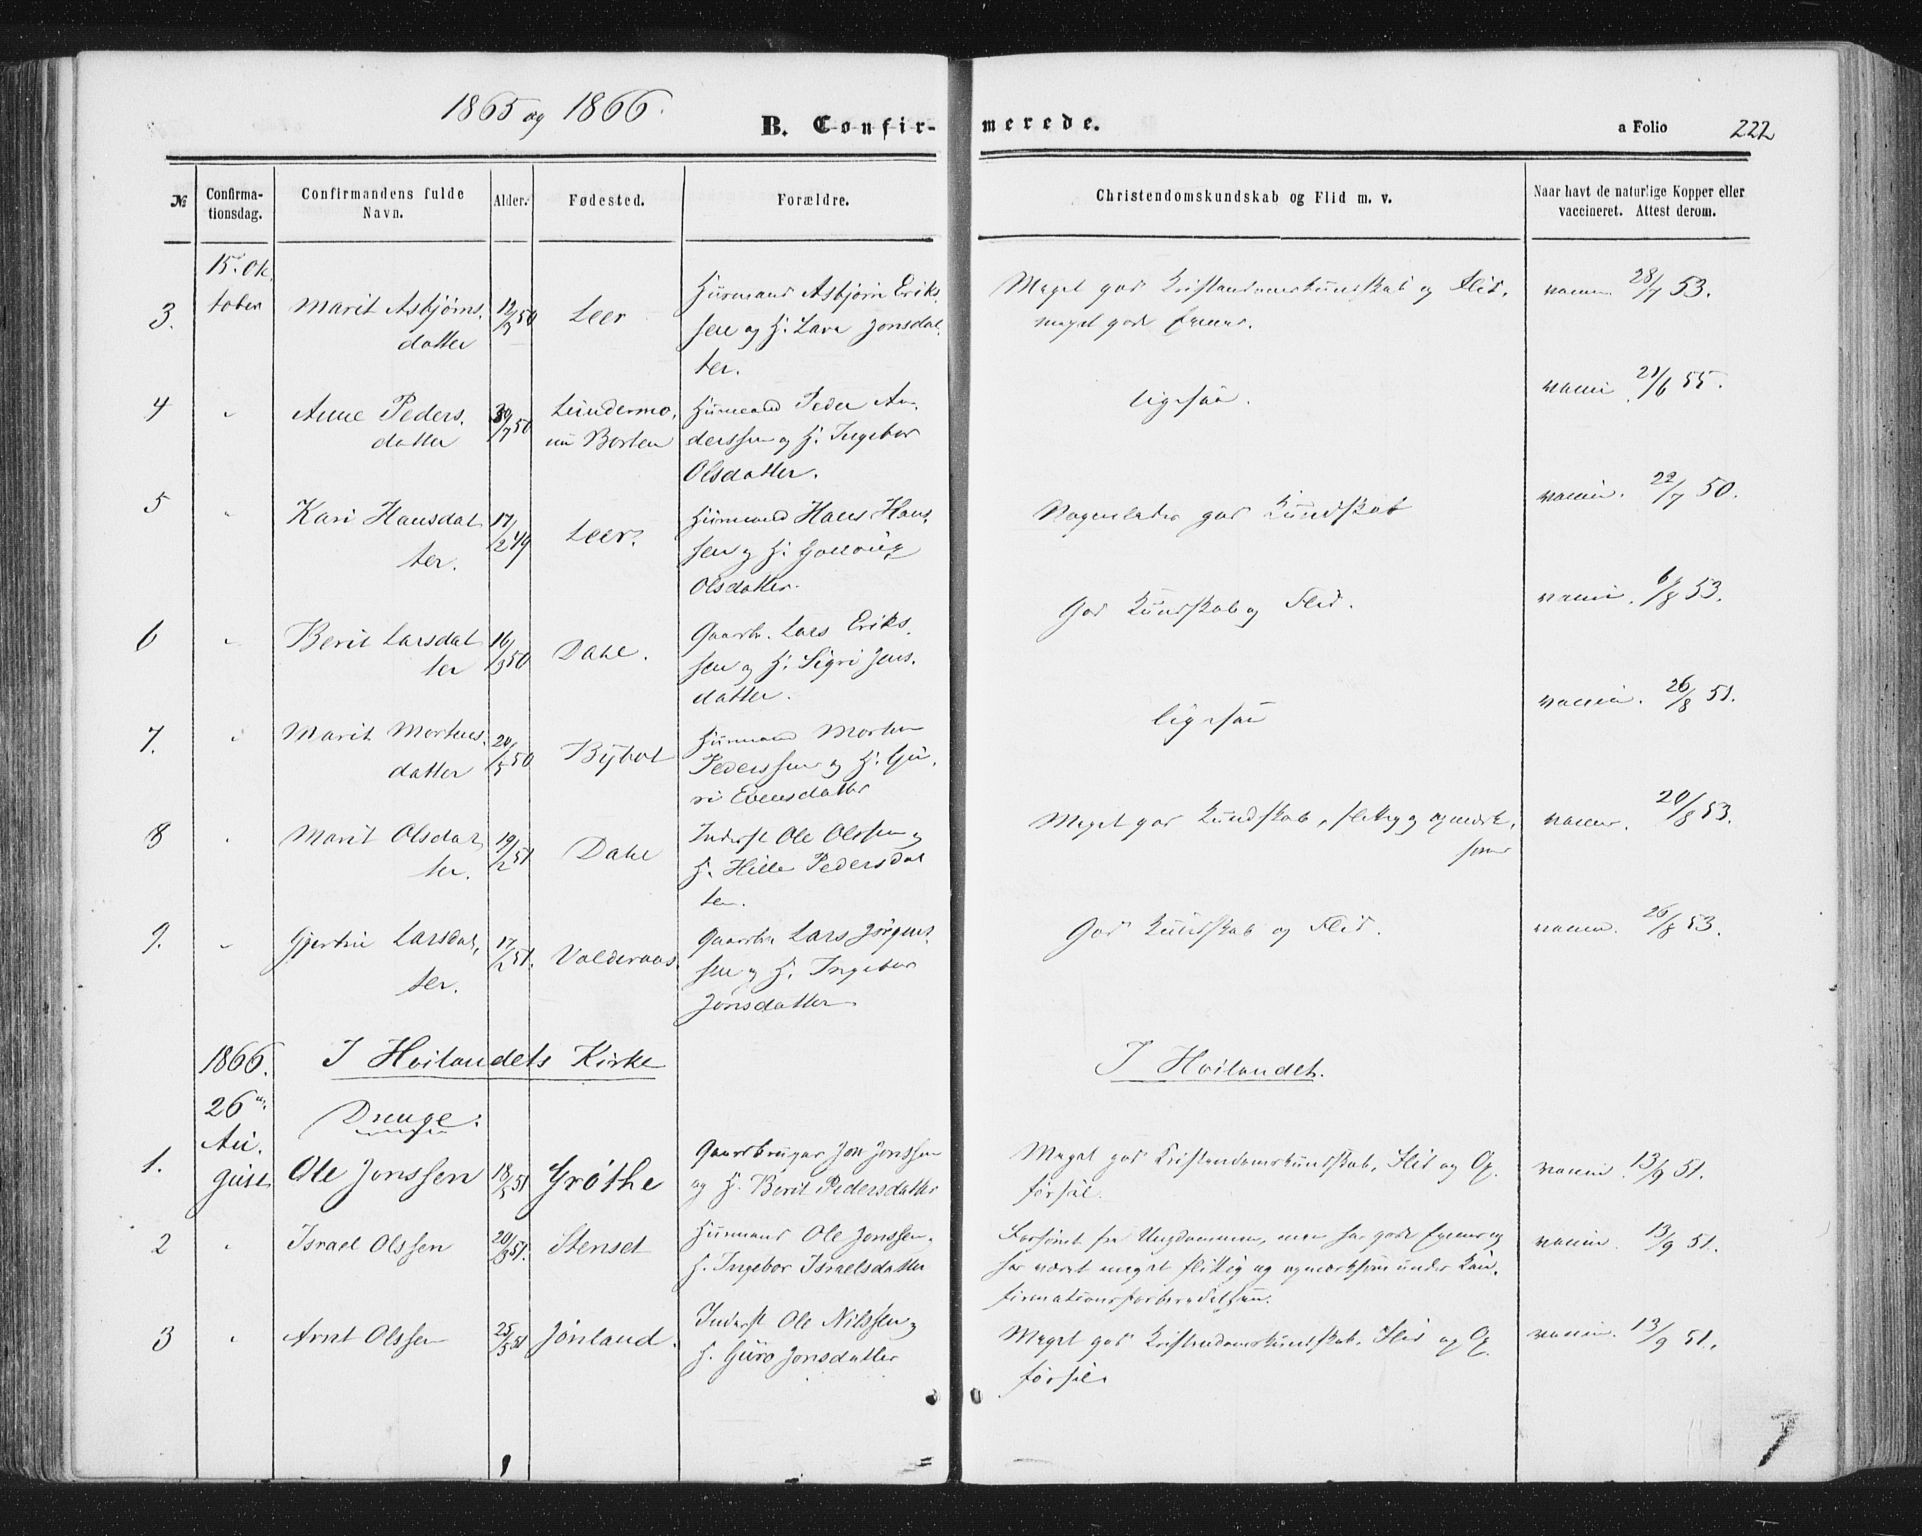 1865 og 1866.
B. Confirmerede.
a Folio 222
№
Confirmationsdag.
Confirmandens fulde Navn.
Alder.
Fødested.
Forældre.
Christendomskundskab og Flid m. v.
Naar havt de naturlige Kopper eller
vaccineret. Attest derom.
15. Ok
tober
3. Marit Asbjørns
datter
12/7 50
Leer
Huusmand Asbjørn Eriks
sen og H. Jonsdat
ter.
Meget god Kristendomskundskab og Flid,
meget gode Evner.
vaccin. 28/7 53.
4 " Anne Peders
datter
30/7 50
Borten
Huusmand Peder An
derssen og H. Ingebor
Olsdatter.
ligesaa.
vaccin. 21/6 55.
5 " Kari Hansdat
ter.
17/2 49
Leer.
Huusmand Hans Hans
sen og H.
Olsdatter.
Nogenledes god Kundskab
vaccin. 22/7 50.
6 " Berit Larsdat
ter
16/3 50
Dahl.
Gaardbr. Lars Eriks
sen og H. Sigri Jens
datter.
God Kundskab og Flid.
vaccin. 6/8 53.
7. " Marit Mortens
datter
20/5 50
Bybot
Huusmand Morten
Pederssen og H. Gu
ri Evensdatter
ligesaa
vaccin. 26/8 51.
8 " Marit Olsdat
ter.
19/2 51
Dahl
Inderst Ole Olssen og
H. Hille Pedersdat
ter.
Meget god Kundskab, flittig og opmærk
som
vaccin. 20/8 53.
9. " Gjertru Larsdat
ter.
17/2 51.
Valderaas.
Gaardbr Lars Jørgens
sen og H. Ingebor
Jonsdatter
God Kundskab og Flid.
vaccin. 26/8 53.
1866.
I Høilandets Kirke
I Høilandet.
26de
Au
gust
Drenge:
1. Ole Jonssen
18/5 51
Grøthe
Gaardbruger Jon Jonssen
og H. Berit Pedersdatter
Meget god Kristendomskundskab, Flid og Op
førsel.
vaccin. 13/9 51.
2 " Israel Olssen
20/3 51.
Stenset
Huusmand Ole Jonssen,
H. Ingebor Israelsdatter
Forsømt fra Ungdommen, men har gode Evner og
har været meget flittig og opmærksom under Kon
firmationsforberedelsen.
vaccin. 13/9 51.
3 " Arnt Olssen
25/5 51
Jønland.
Inderst Ole Nilssen og
H. Guro Jonsdatter
Meget god Kristendomskundskab, Flid og Op
førsel.
vaccin. 13/9 51.